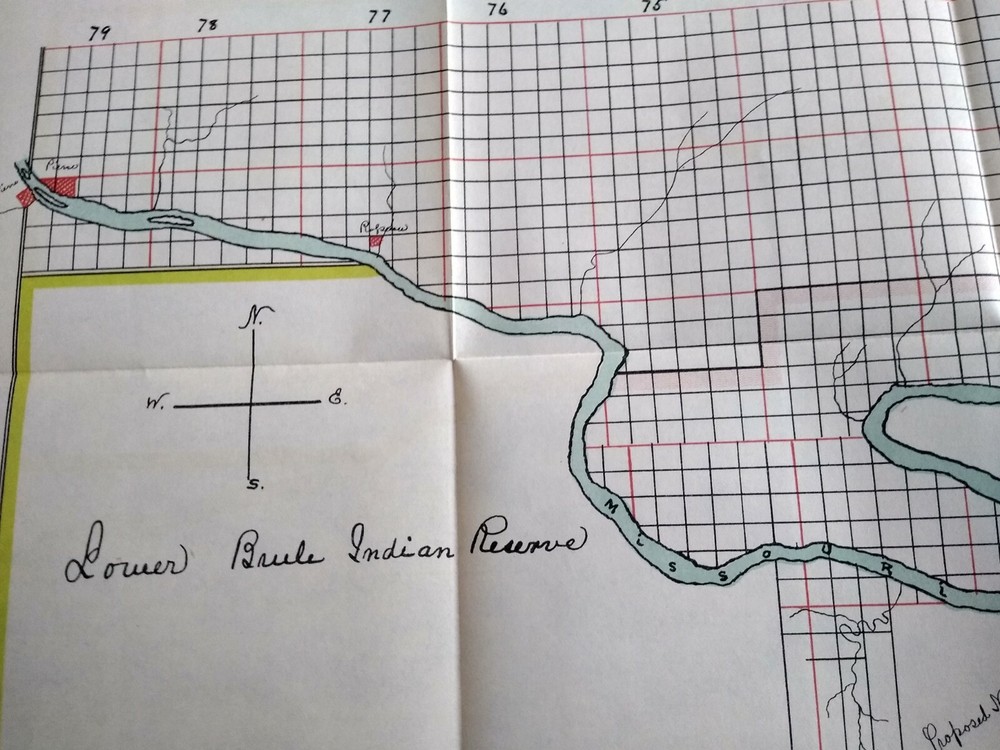 79 78 77 76 75
Pierre
N.
W. E.
S.
Lower Brule Indian Reserve
MISSOURI
Proposed